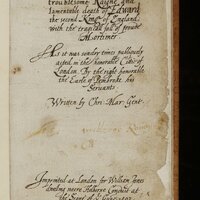 troublesome Raigne and
lamentable death of Edward
the second King of England,
with the tragicall fall of proude
Mortimer
As it was sundry times publiquely
acted in the honorable Citie of
London By the right honorable
the Earle of Pembroke his
Servants
Written by Chri. Mar. Gent.
Imprinted at London for William Jones
dwelling neere Holborne Conduit at
the Signe of